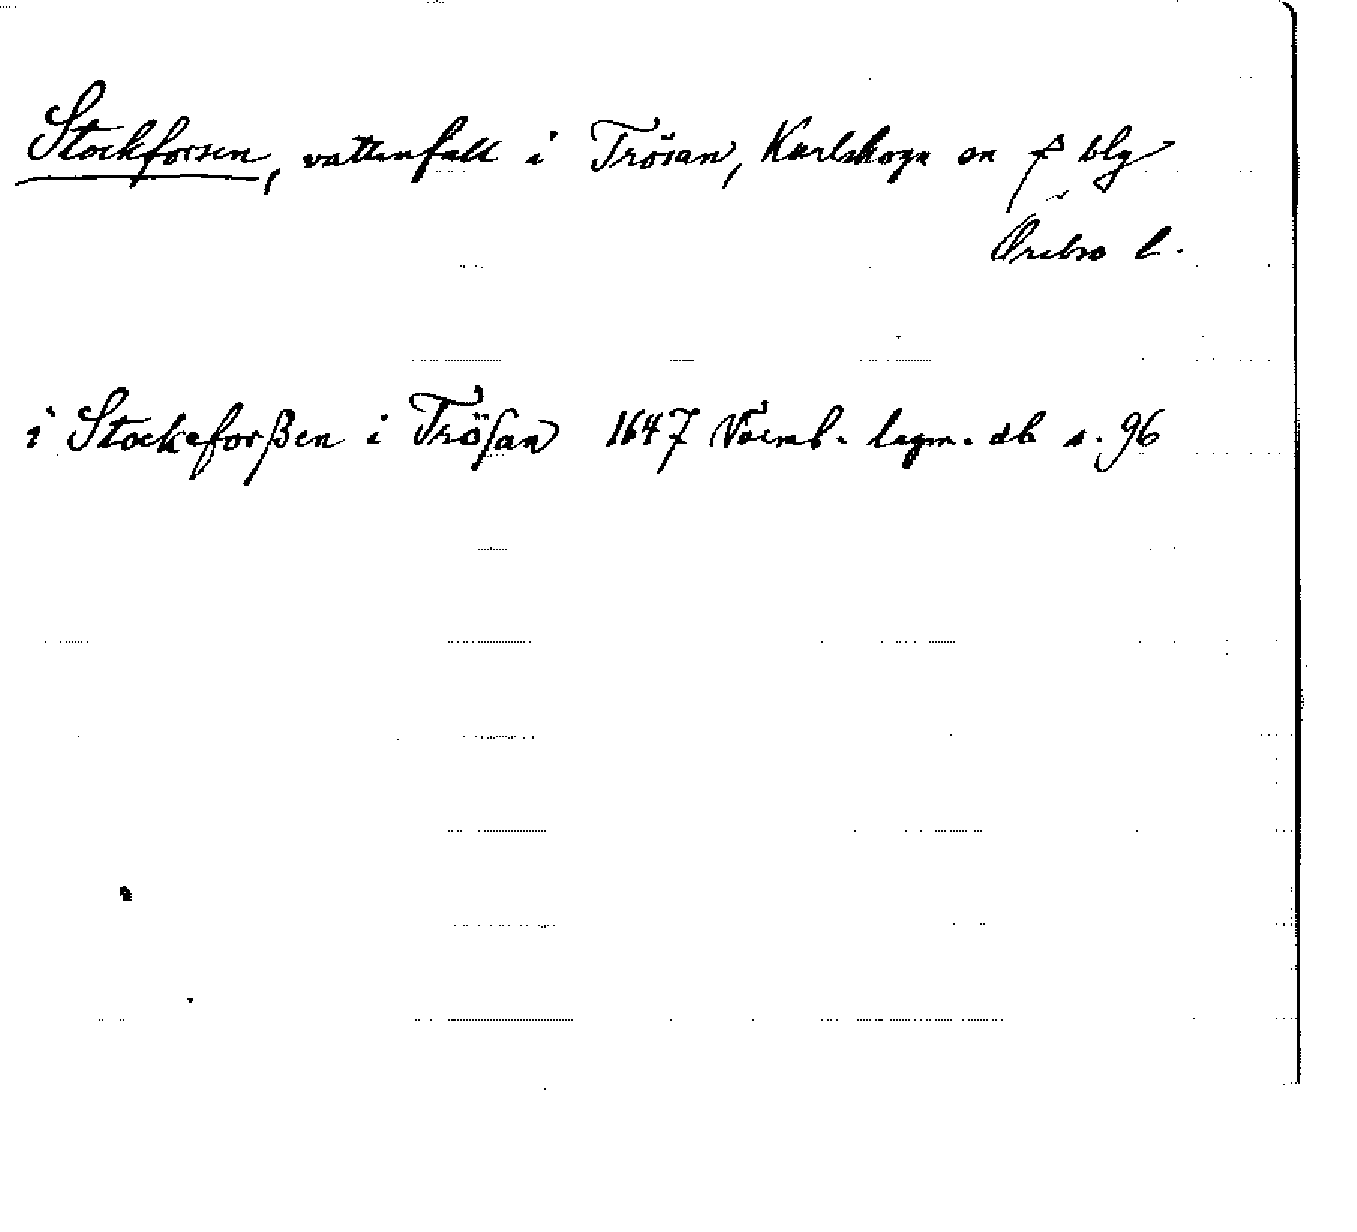 Stockforsen, vattenfall i Trösan, Karlskoga sn o blg
Örebro l.
i Stockeforßen i Tröſan 1647 Värml. lagm. db s. 96